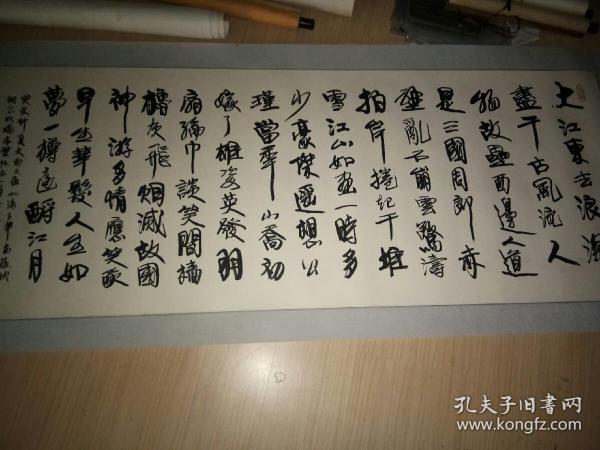 大江東去浪淘
盡千古風流人
物故壘西邊人道
是三國周郎赤
壁亂石崩雲驚濤
拍岸捲起千堆
雪江山如畫一時多
少豪傑遥想公
瑾當年小喬初
嫁了雄姿英發羽
扇綸巾談笑間檣
櫓灰飛烟滅故國
神游多情應笑我
早生華髮人生如
夢一樽還酹江月
孔夫子旧书网
www.kongfz.com